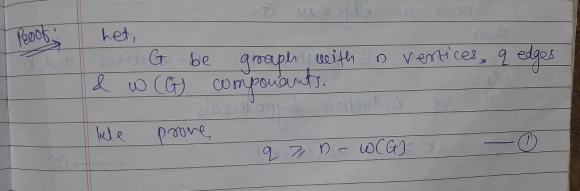 Proof: Let,
G be graph with n vertices, q edges
& w(G) componants.
We prove,
q ≥ n - w(G) — ①